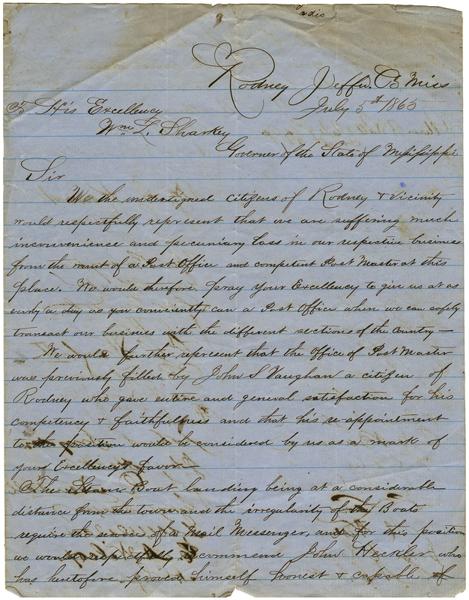 Rodney Jeffn. Co Miss
July 5th 1865
To His Excellency
Wm L. Sharkey
Governor of the State of Mississippi
Sir
We the undersigned citizens of Rodney & Vicinity
would respectfully represent that we are suffering much
inconvenience and pecuniary loss in our respective business
from the want of a Post Office and competent Post Master at this
place. We would therefore pray your Excellency to give us at as
early a day as you conveniently can a Post Office where we can safely
transact our business with the different sections of the Country —
We would further represent that the Office of Post Master
was previously filled by John S Vaughan a citizen of
Rodney who gave entire and general satisfaction for his
competency & faithfullness and that his re-appointment
to the position would be considered by us as a mark of
your Excellency's favor —
The Steam Boat landing being at a considerable
distance from the town and the irregularity of the Boats
require the services of a Mail Messenger, and for this position
we would respectfully recommend John Heckler who
has heretofore proved himself honest & capable of